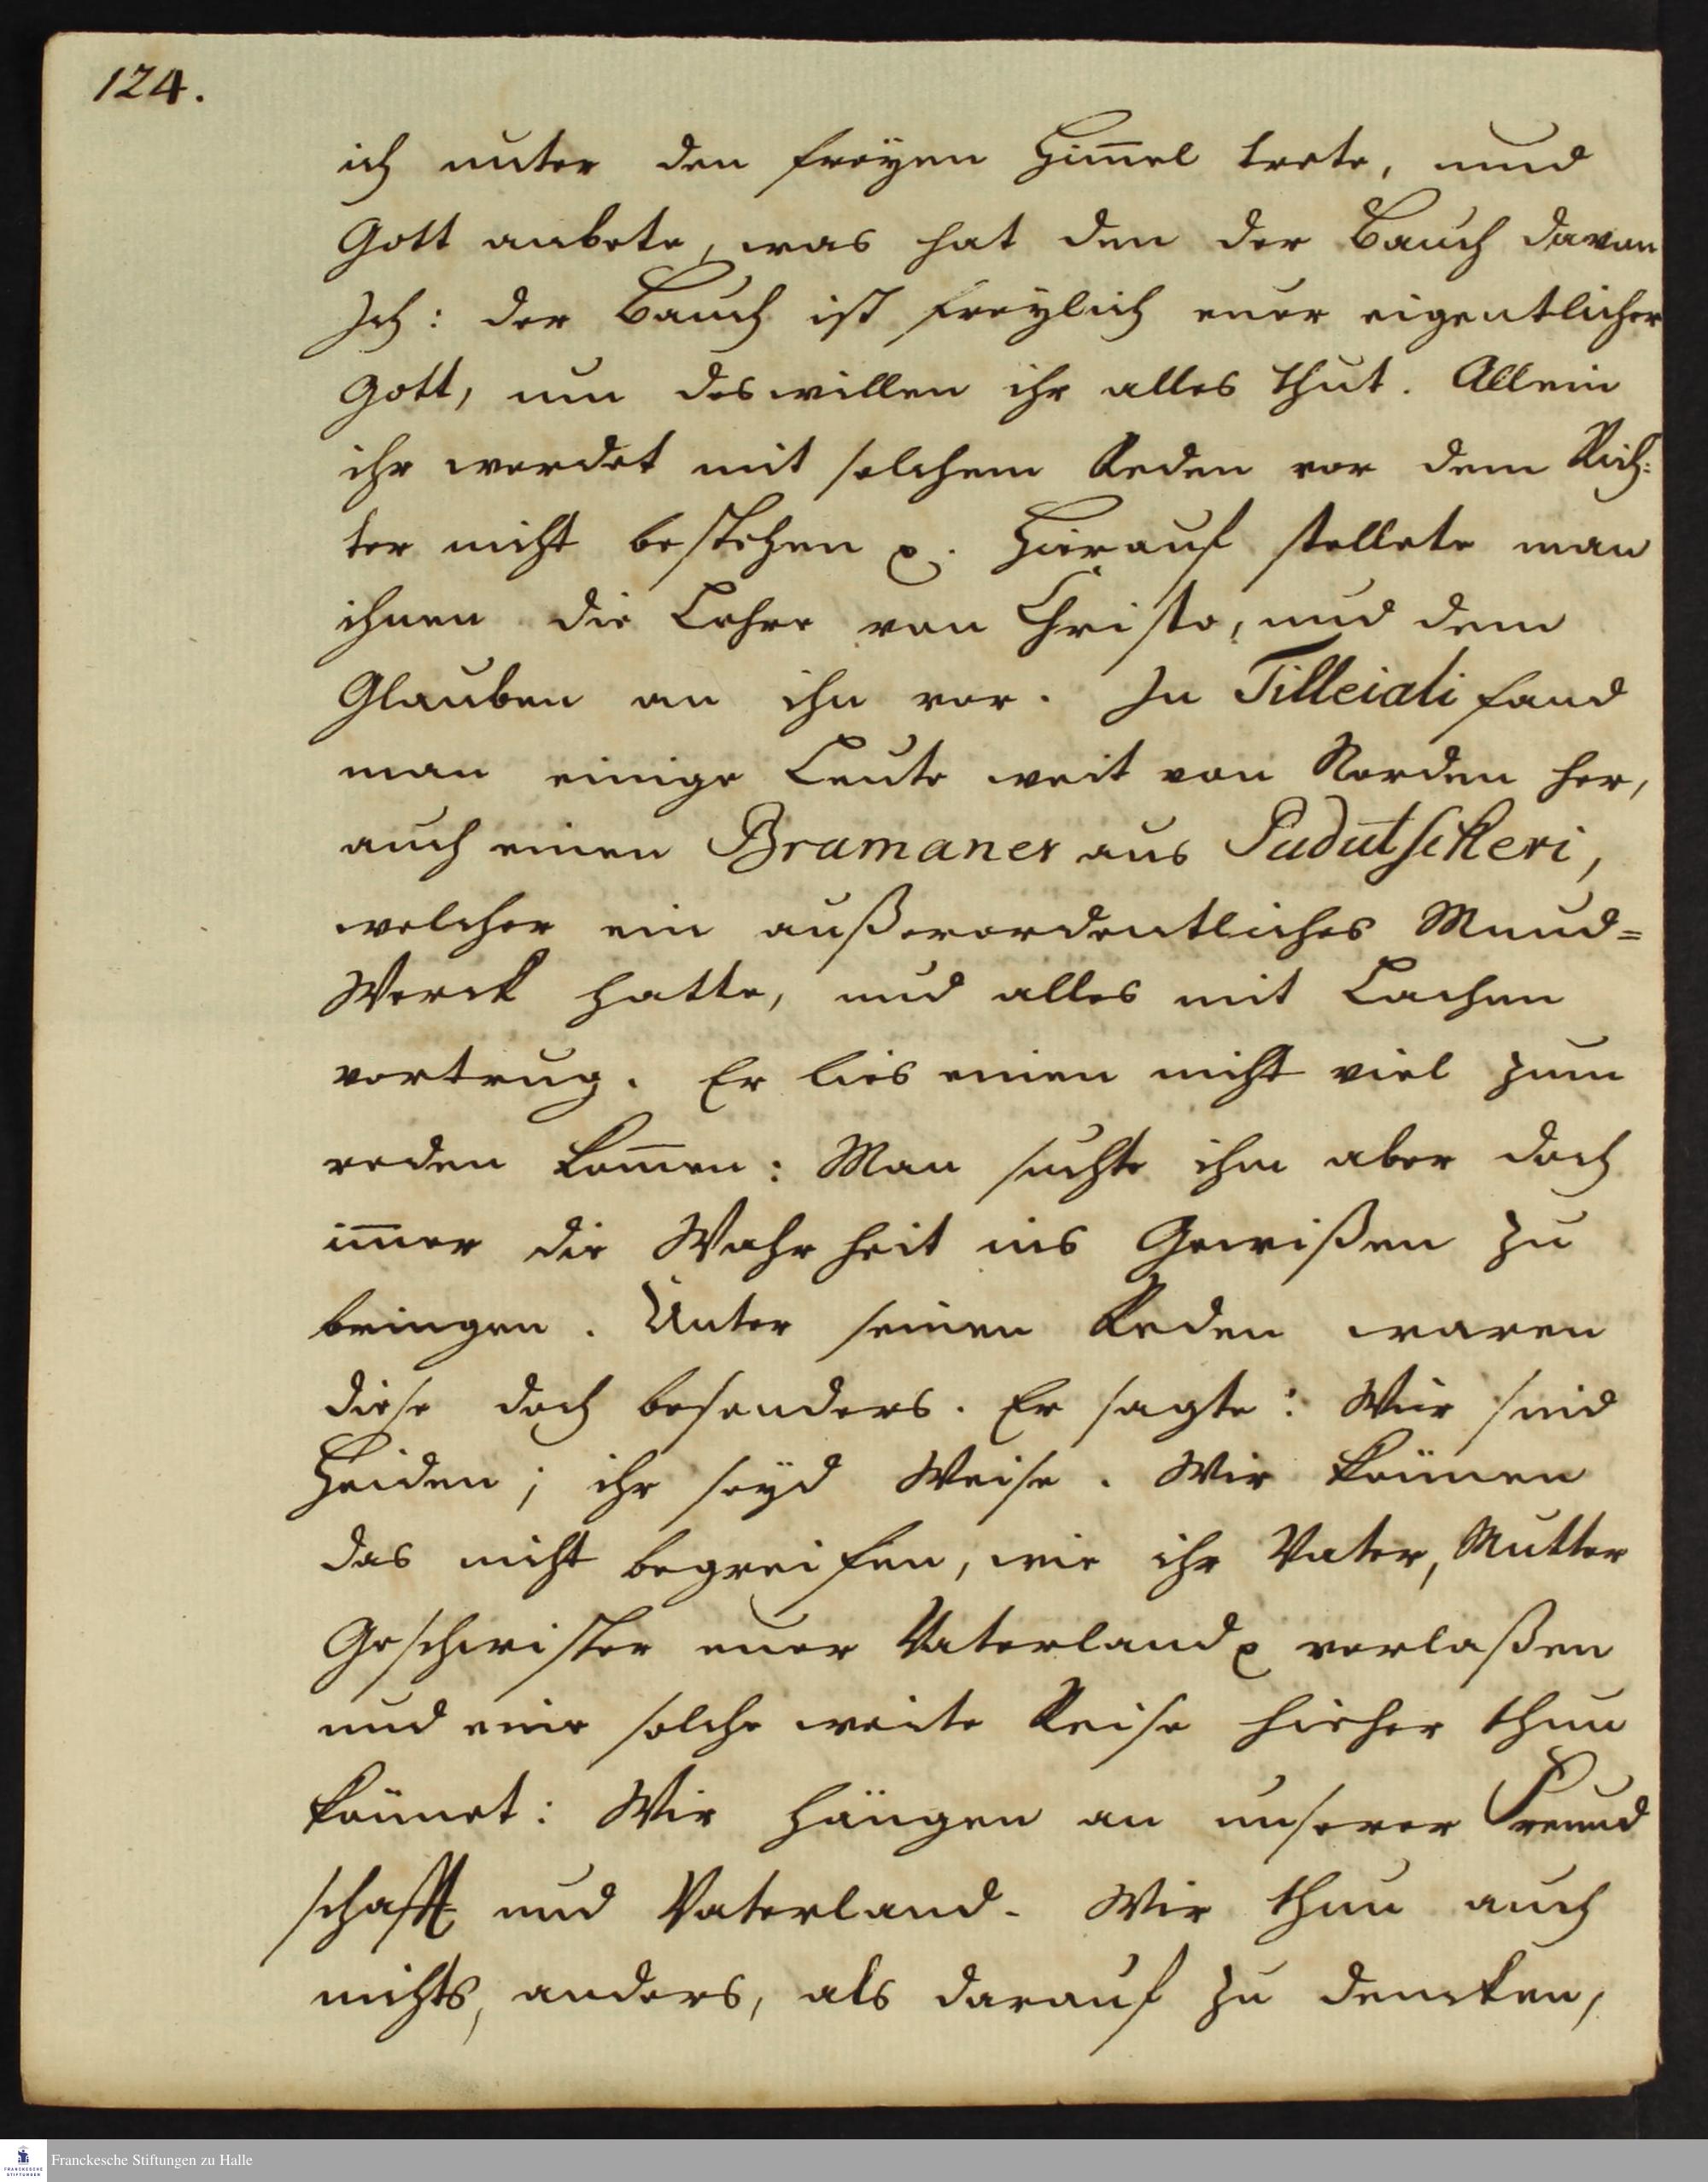 124.
ich unter den freÿen Him̅el trete, und
Gott anbete, was hat den der Bauch davon
Ich: der Bauch ist freÿlich euer eigentlicher
Gott, um deswillen ihr alles thut. Allein
ihr werdet mit solchem Reden vor dem Rich:
ter nicht bestehen ꝛc. Hierauf stellete man
ihnen die Lehre von Christo, und dem
Glauben an ihn vor. In Tilleiali fand
man einige Leute weit von Norden her,
auch einen Bramaner aus Pudutscheri,
welcher ein außerordentliches Mund=
Werck hatte, und alles mit Lachen
vortrug. Er lies einen nicht viel zum
reden kom̅en: Man suchte ihm aber doch
im̅er die Wahrheit ins Gewißen zu
bringen. Unter seinen Reden waren
diese doch besonders. Er sagte: Wir sind
Heiden; ihr seÿd Weise. Wir können
das nicht begreifen, wie ihr Vater, Mutter
Geschwister euer Vaterland ꝛc verlaßen
und eine solche weite Reise hieher thun
könnet: Wir hängen an unserer Freund
schafft und Vaterland. Wir thun auch
nichts, anders, als darauf zu dencken,
Franckesche Stiftungen zu Halle
FRANCKESCHE
STIFTUNGEN